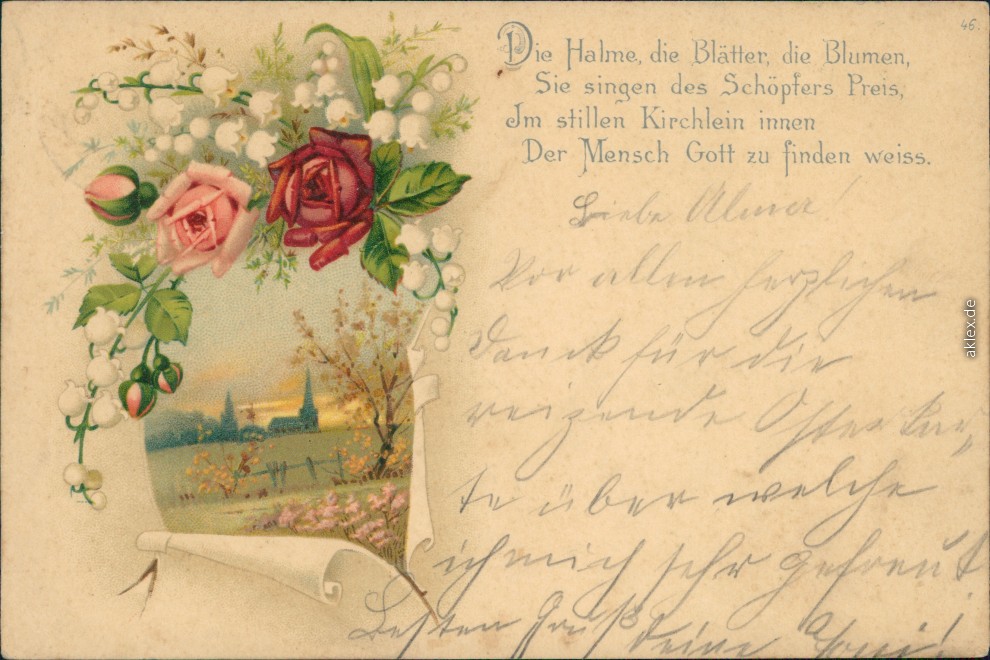 46.
Die Halme, die Blätter, die Blumen,
Sie singen des Schöpfers Preis,
Im stillen Kirchlein innen
Der Mensch Gott zu finden weiss.
Liebe Alma!
Vor allen herzlichen
Danck für die
reizende Osterkar„
te über welche
ich mich sehr gefreut
Besten Gruß Deine
aklex.de